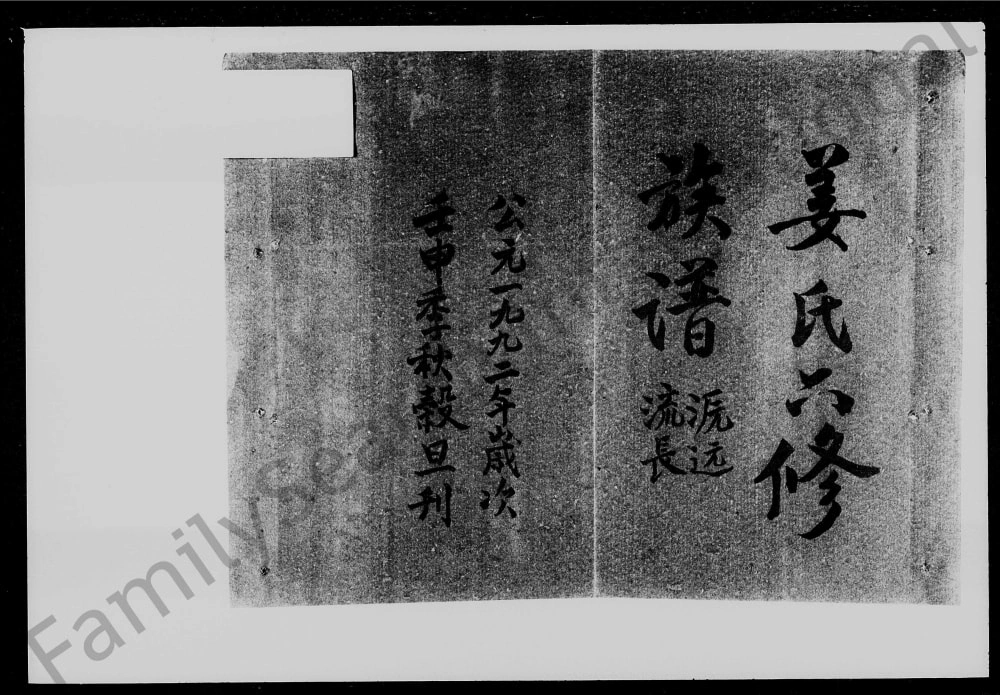 姜氏六修
族谱
源远
流長
公元一九九二年歲次
壬申季秋穀旦刊
FamilySearch